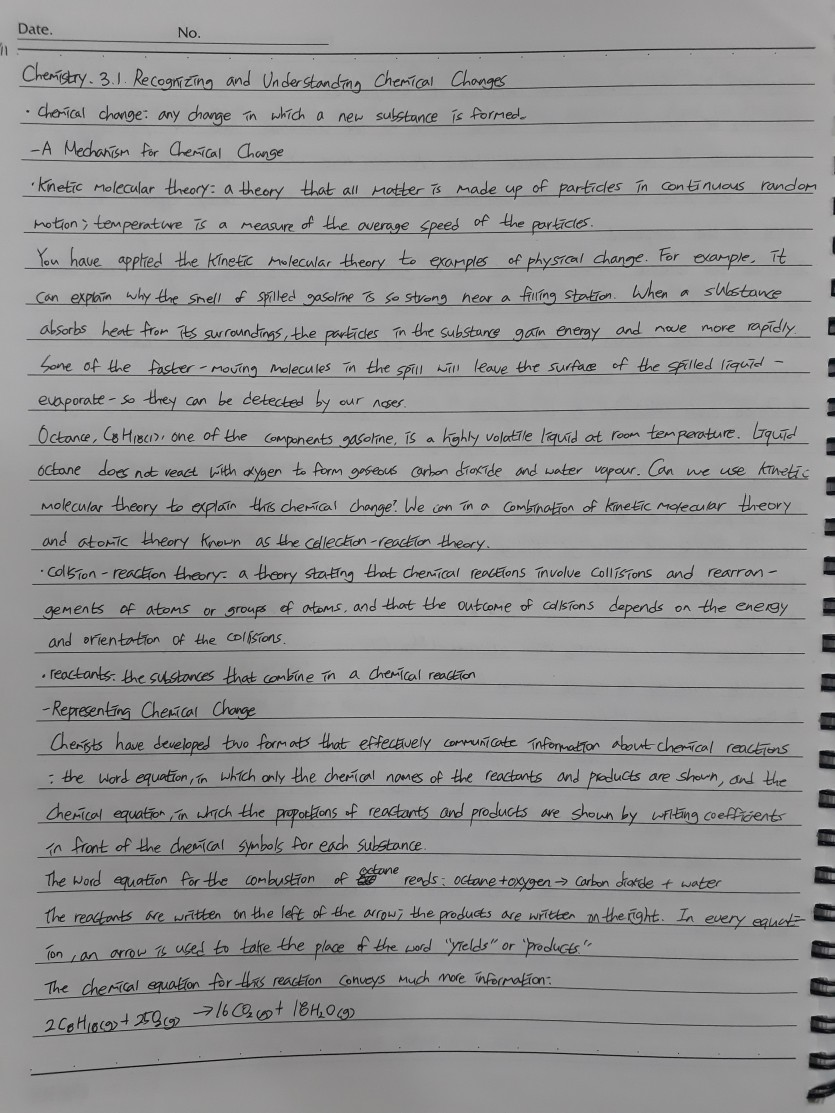 Date.
No.
Chemistry. 3.1. Recognizing and Understanding Chemical Changes
· Chemical change: any change in which a new substance is formed.
-A Mechanism for Chemical Change
·Kinetic molecular theory: a theory that all matter is made up of particles in continuous random
motion; temperature is a measure of the average speed of the particles.
You have applied the kinetic molecular theory to examples of physical change. For example, it
can explain why the smell of spilled gasoline is so strong near a filling station. When a substance
absorbs heat from its surroundings, the particles in the substance gain energy and move more rapidly.
Some of the faster-moving molecules in the spill will leave the surface of the spilled liquid -
evaporate - so they can be detected by our noses.
Octance, C8H18(l), one of the components gasoline, is a highly volatile liquid at room temperature. Liquid
octane does not react with oxygen to form gaseous carbon dioxide and water vapour. Can we use kinetic
molecular theory to explain this chemical change? We can in a combination of kinetic molecular theory
and atomic theory known as the collection-reaction theory.
·collision-reaction theory: a theory stating that chemical reactions involve collisions and rearran-
gements of atoms or groups of atoms, and that the outcome of collisions depends on the energy
and orientation of the collisions.
·reactants: the substances that combine in a chemical reaction
-Representing Chemical Change
Chemists have developed two formats that effectively communicate information about chemical reactions
: the word equation, in which only the chemical names of the reactants and products are shown, and the
chemical equation, in which the proportions of reactants and products are shown by writing coefficients
in front of the chemical symbols for each substance.
The word equation for the combustion of octane reads: octane + oxygen → carbon dioxide + water
The reactants are written on the left of the arrow; the products are written on the right. In every equat-
ion, an arrow is used to take the place of the word "yields" or "products."
The chemical equation for this reaction conveys much more information:
2C8H18(g) + 25O2(g) → 16CO2(g) + 18H2O(g)